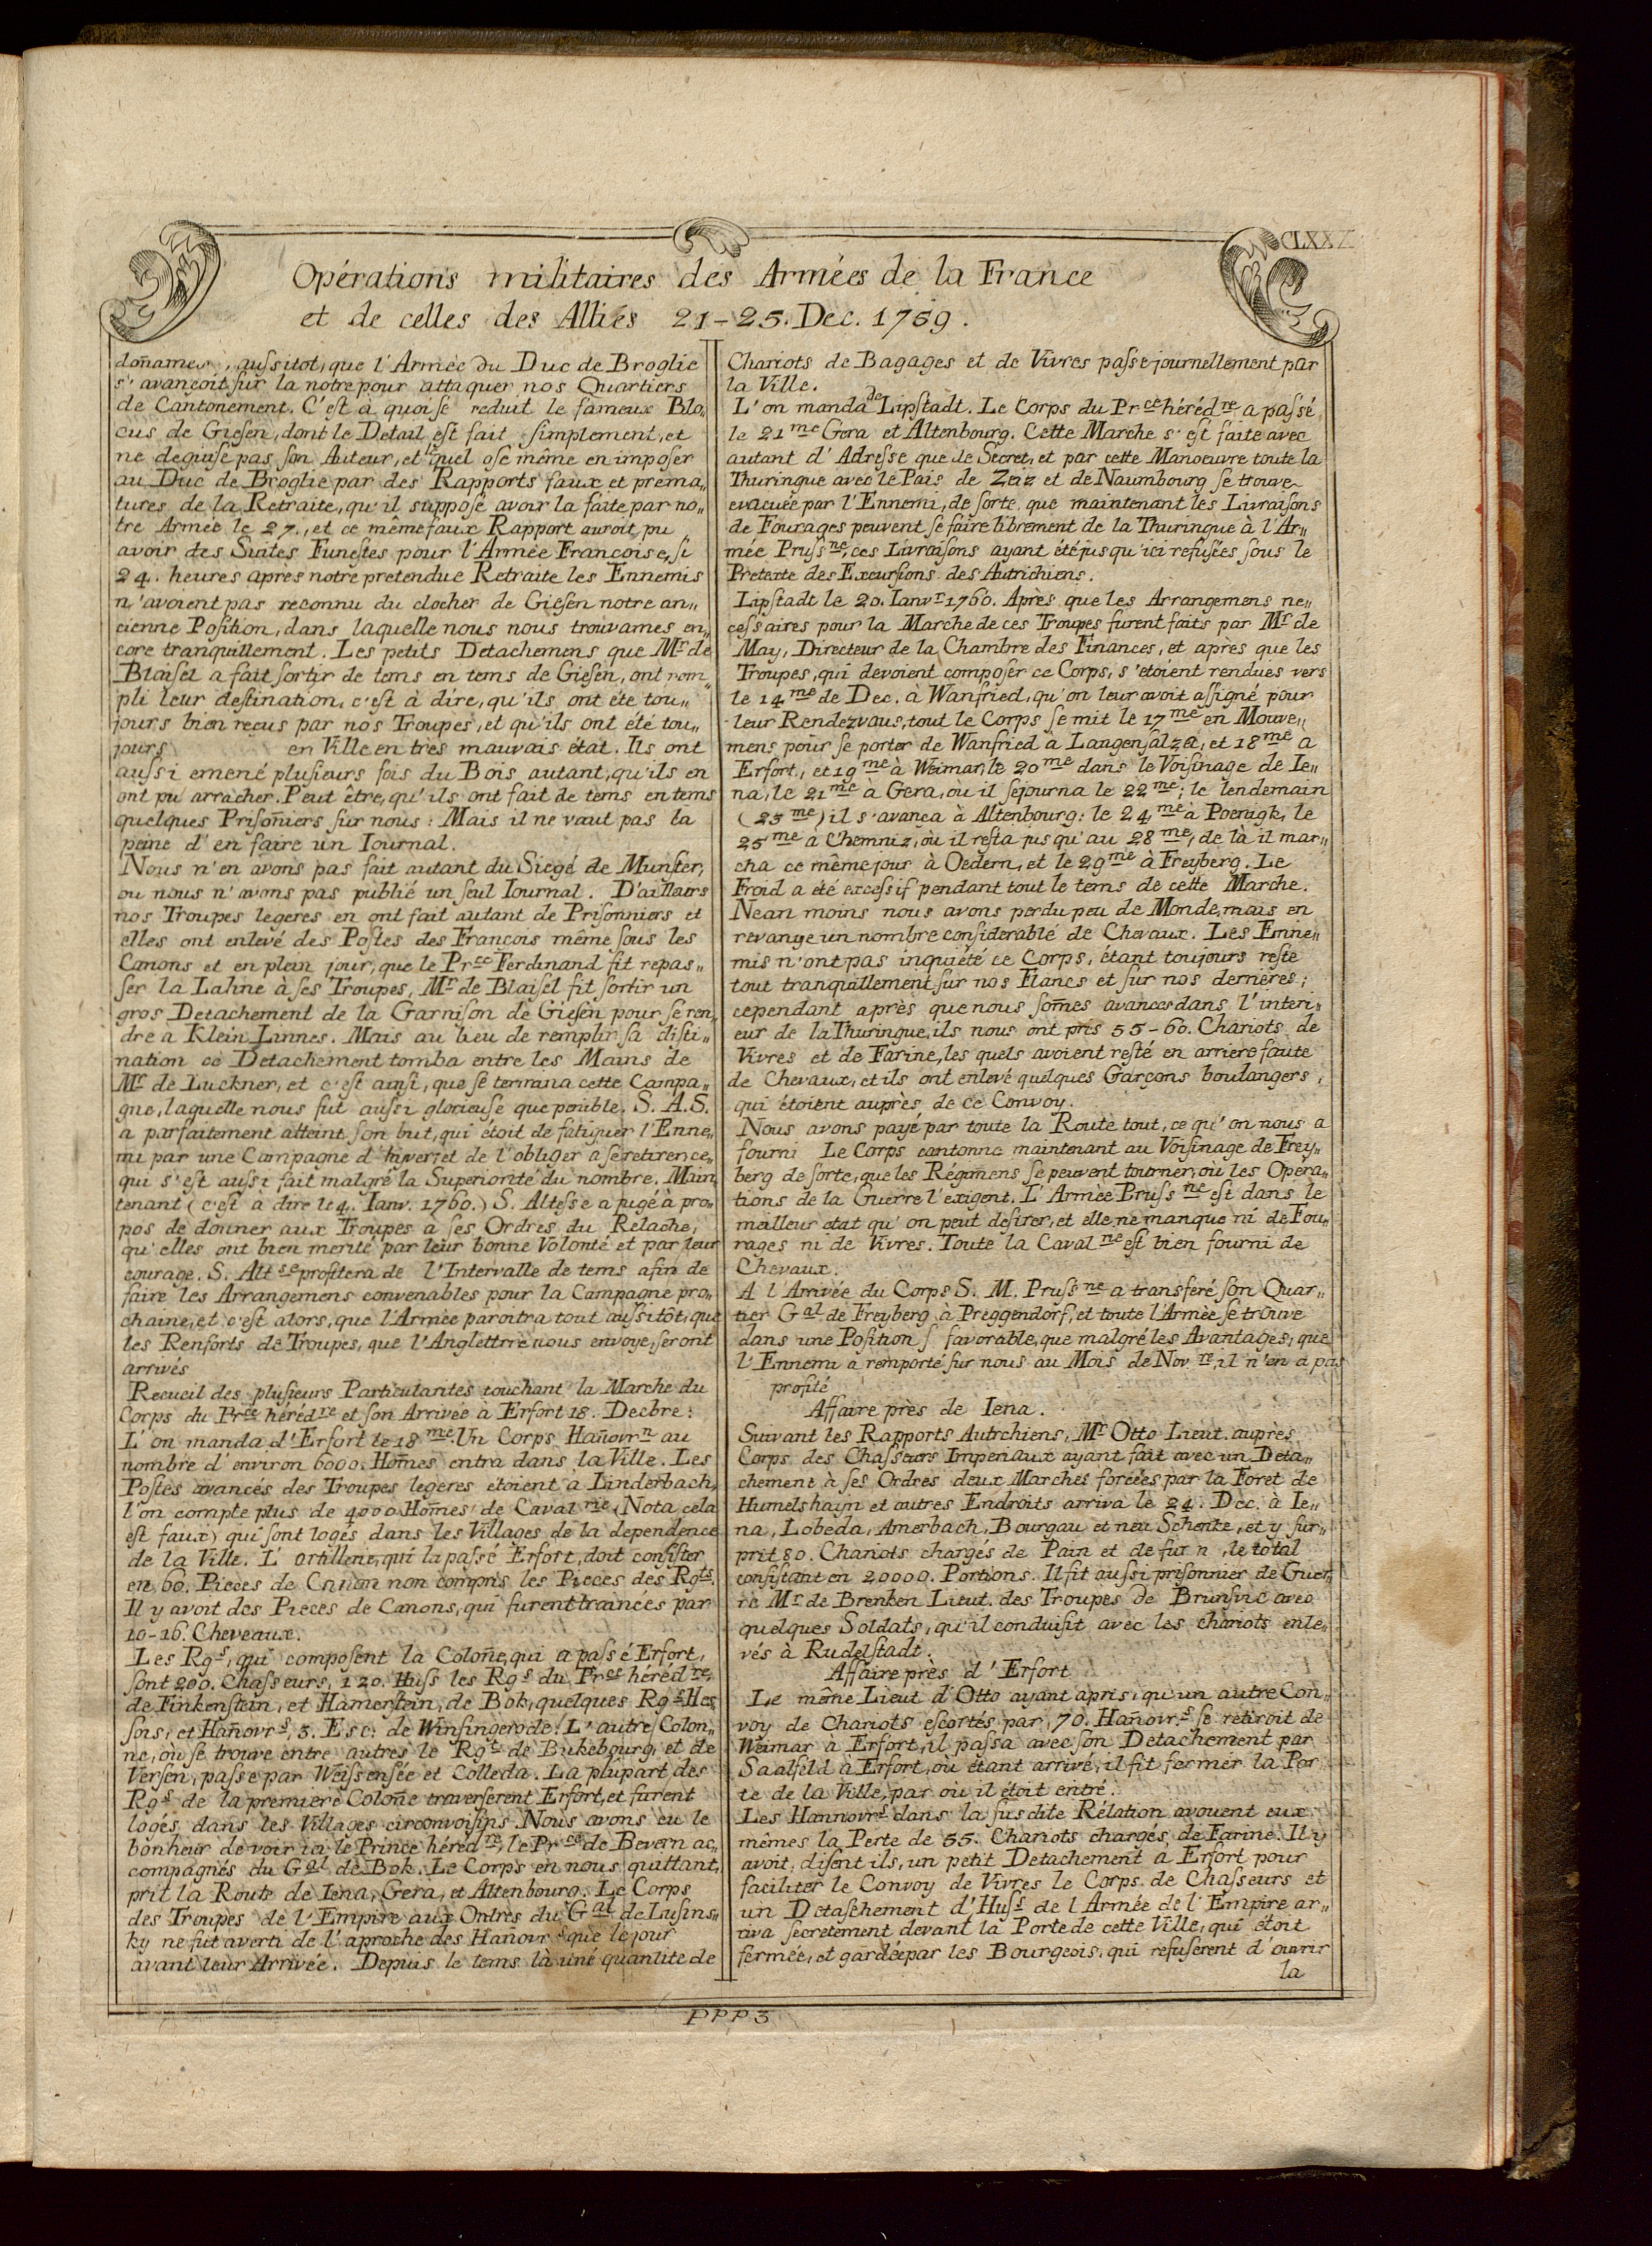 CLXXX
Opérations militaires des Armées de la France
et de celles des Alliés 21-25. Dec. 1759.
doñames, aussitot, que l'Armée du Duc de Broglie
s'avançoit sur la notre pour attaquer nos Quartiers
de Cantonement. C'est à quoi se reduit le fameux Blo„
cus de Giesen, dont le Detail est fait simplement, et
ne deguise pas son Auteur, et lequel ose même en imposer
au Duc de Broglie par des Rapports faux et prema„
tures de la Retraite, qu'il suppose avoir la faite par no„
tre Armée le 27., et ce même faux Rapport auroit pu
avoir des Suites Funestes pour l'Armée Francoise, si
24. heures après notre pretendue Retraite les Ennemis
n'avoient pas reconnu du clocher de Giesen notre an„
cienne Position, dans laquelle nous nous trouvames en„
core tranquillement. Les petits Detachemens que Mr de
Blaisel a fait sortir de tems en tems de Giesen, ont rem„
pli leur destination, c'est à dire, qu'ils ont été tou„
jours bien reçus par nos Troupes, et qu'ils ont été tou„
jours en Ville en tres mauvais état. Ils ont
aussi emené plusieurs fois du Bois autant, qu'ils en
ont pu arracher. Peut être, qu'ils ont fait de tems en tems
quelques Prisoñiers sur nous: Mais il ne vaut pas la
peine d'en faire un Iournal.
Nous n'en avons pas fait autant du Siege de Munster,
ou nous n'avons pas publié un seul Iournal. D'ailleurs
nos Troupes legeres en ont fait autant de Prisonniers et
elles ont enlevé des Postes des François même sous les
Canons et en plein jour, que le Prce Ferdinand fit repas„
ser la Lahne à ses Troupes, Mr de Blaisel fit sortir un
gros Detachement de la Garnison de Giesen pour se ren„
dre a Klein Linnes. Mais au lieu de remplir sa disti„
nation ce Detachement tomba entre les Mains de
Mr de Luckner, et c'est ainsi, que se termina cette Campa„
gne, laquelle nous fut aussi glorieuse que penible. S. A. S.
a parfaitement atteint son but, qui étoit de fatiguer l'Enne„
mi par une Campagne d'hiver, et de l'obliger a se retirer, ce„
qui s'est aussi fait malgré la Superiorité du nombre. Main„
tenant (c'est à dire le 4. Ianv. 1760.) S. Altesse a jugé à pro„
pos de donner aux Troupes a ses Ordres du Relache,
qu'elles ont bien merité par leur bonne Volonté et par leur
courage. S. Altse profitera de l'Intervalle de tems afin de
faire les Arrangemens convenables pour la Campagne pro„
chaine, et c'est alors, que l'Armée paroitra tout aussitôt, que
les Renforts de Troupes, que l'Anglettrre nous envoye, seront
arrivés
Recueil des plusieurs Particularites touchant la Marche du
Corps du Prce hérédre et son Arrivée à Erfort 18. Decbre:
L'on manda d'Erfort le 18me. Un Corps Hañovrn au
nombre d'environ 6000. Hom̃es entra dans la Ville. Les
Postes avancés des Troupes legeres étoient a Linderbach,
l'on compte plus de 4000 Hom̃es de Cavalrie (Nota cela
est faux) qui sont logés dans les Villages de la dependence
de la Ville. L'artillerie, qui la passé Erfort, doit consister
en 60. Pieces de Canon non compris les Pieces des Rgts.
Il y avoit des Pieces de Canons, qui furent trainées par
10-16. Cheveaux.
Les Rgs, qui composent la Coloñe, qui a passé Erfort,
sont 200. Chasseurs, 120. Huss les Rgs du Prce hérédre,
de Finkenstein, et Hamerstein, de Bok, quelques Rgs Hes„
sois, et Hañovrs, 3. Esc: de Winsingerode. L'autre Colon„
ne, où se trouve entre autres le Rgt de Bukebourg, et de
Versen, passe par Weissensée et Colleda. La plûpart des
Rgs de la premiere Coloñe traverserent Erfort, et furent
logés dans les Villages circonvoisins. Nous avons eu le
bonheur de voir ici le Prince hérédre, le Prce de Bevern ac„
compagnés du Gal de Bok. Le Corps en nous quittant,
prit la Route de Iena, Gera, et Altenbourg. Le Corps
des Troupes de l'Empire aux Ordres du Gal de Lusins„
ky ne fut averti de l'aproche des Hañovrs que le jour
avant leur Arrivée. Depuis le tems là uné quantite de
Chariots de Bagages et de Vivres passe journellement par
la Ville.
L'on manda de Lipstadt. Le Corps du Prce hérédre a passé
le 21me Gera et Altenbourg. Cette Marche s'est faite avec
autant d'Adresse que de Secret, et par cette Manoeuvre toute la
Thuringue avec le Païs de Zeiz et de Naumbourg se trouve
evacuée par l'Ennemi, de sorte que maintenant les Livraisons
de Fourages peuvent se faire librement de la Thuringue à l'Ar„
mée Prussne, ces Livraisons ayant été jusqu'ici refusées sous le
Pretexte des Excursions des Autrichiens.
Lipstadt le 20. Ianvr 1760. Après que les Arrangemens ne„
cessaires pour la Marche de ces Troupes furent faits par Mr de
May, Directeur de la Chambre des Finances, et après que les
Troupes, qui devoient composer ce Corps, s'etoient rendues vers
le 14me de Dec. à Wanfried, qu'on leur avoit assigné pour
leur Rendezvous, tout le Corps se mit le 17me en Mouve„
mens pour se porter de Wanfried à Langensalza, et 18me a
Erfort, et 19me à Weimar, le 20me dans le Voisinage de Ie„
na, le 21me à Gera, où il sejourna le 22me; le lendemain
(23me) il s'avança à Altenbourg: le 24me à Poenigk, le
25me à Chemniz, où il resta jusqu'au 28me, de là il mar„
cha ce même jour à Oedern, et le 29me à Freyberg. Le
Froid a été excessif pendant tout le tems de cette Marche.
Nean moins nous avons perdu peu de Monde, mais en
revange un nombre considerable de Chevaux. Les Enne„
mis n'ont pas inquiété ce Corps, étant toujours resté
tout tranquillement sur nos Flancs et sur nos derrieres;
cependant après que nous som̃es avances dans l'interi„
eur de la Thuringue, ils nous ont pris 55-60. Chariots de
Vivres et de Farine, les quels avoient resté en arriere faute
de Chevaux, et ils ont enlevé quelques Garçons boulangers,
qui étoient auprès de ce Convoy.
Nous avons payé par toute la Route tout, ce qu'on nous a
fourni Le Corps cantonne maintenant au Voisinage de Frey„
berg de sorte, que les Régimens se peuvent tourner, où les Opera„
tions de la Guerre l'exigent. L'Armée Prussne est dans le
meilleur etat qu'on peut desirer, et elle ne manque ni de Fou„
rages ni de Vivres. Toute la Cavalne est bien fourni de
Chevaux.
A l'Arrivée du Corps S. M. Prussne a transferé son Quar„
tier Gal de Freyberg à Preggendorf, et toute l'Armée se trouve
dans une Position s favorable, que malgré les Avantages, que
l'Ennemi a remporté sur nous au Mois de Nov.re, il n'en a pas
profité
Affaire près de Iena.
Suivant les Rapports Autrchiens, Mr Otto Lieut. auprès
Corps des Chasseurs Imperiaux ayant fait avec un Deta„
chement à ses Ordres deux Marches forcées par la Foret de
Humelshayn et autres Endroits arriva le 24. Dec. à Ie„
na, Lobeda, Amerbach, Bourgau et neu Schenke, et y sur„
prit 80. Chariots chargés de Pain et de fur n, le total
consistant en 20000. Portions. Il fit aussi prisonnier de Guer„
re Mr de Brenken Lieut. des Troupes de Brunsvic avec
quelques Soldats, qu'il conduisit avec les chariots enle„
vés à Rudelstadt.
Affaire près d'Erfort
Le même Lieut d'Otto ayant apris, qu'un autre Con„
voy de Chariots escortés par 70. Hañovr.s se retiroit de
Weimar a Erfort, il passa avec son Detachement par
Saalfeld à Erfort, où étant arrivé, il fit fermer la Por
te de la Ville, par où il étoit entré.
Les Hannovrs dans la susdite Rélation avouent eux
mêmes la Perte de 55. Chariots chargés de Farine. Il y
avoit, disent ils, un petit Detachement a Erfort pour
faciliter le Convoy de Vivres le Corps de Chasseurs et
un Detaschement d'Huss de l Armée de l'Empire ar„
riva secretement devant la Porte de cette Ville, qui étoit
fermée, et gardée par les Bourgeois, qui refuserent d'ouvrir
la
PPP3